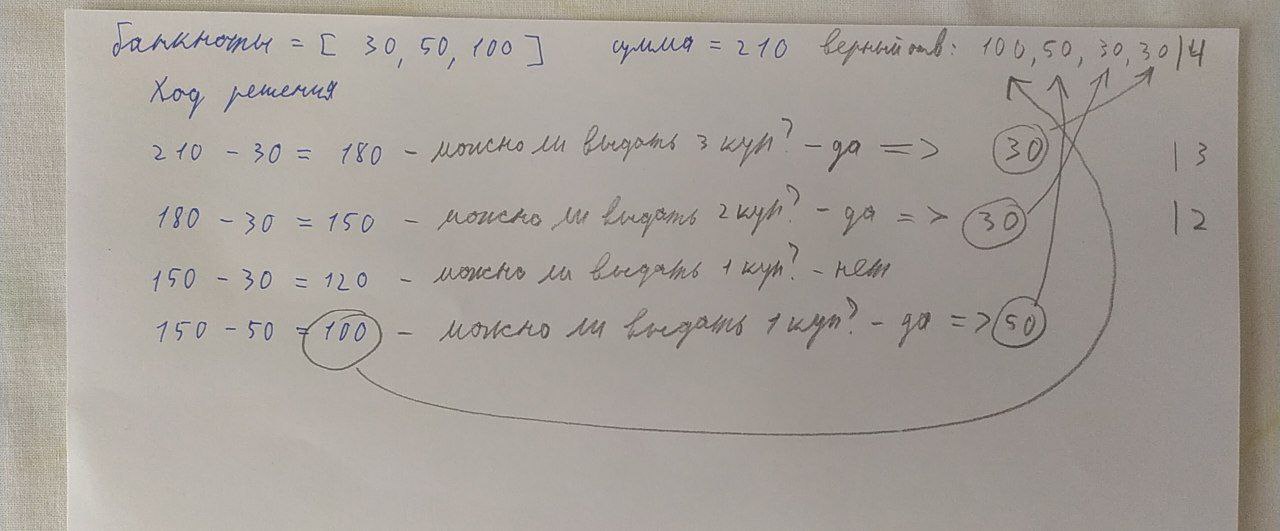 банкноты = [ 30, 50, 100 ] сумма = 210 верный отв: 100, 50, 30, 30 | 4
Ход решения
210 - 30 = 180 - можно ли выдать 3 куп? - да => 30 | 3
180 - 30 = 150 - можно ли выдать 2 куп? - да => 30 | 2
150 - 30 = 120 - можно ли выдать 1 куп? - нет
150 - 50 = 100 - можно ли выдать 1 куп? - да => 50